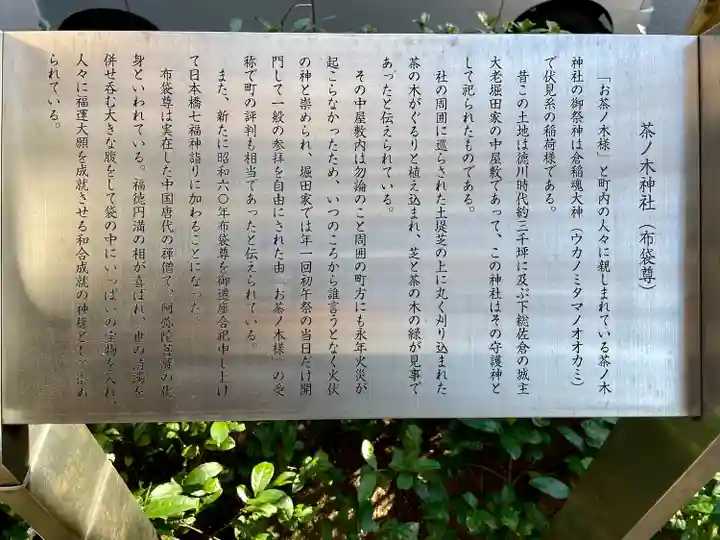 茶ノ木神社（布袋尊）
「お茶ノ木様」と町内の人々に親しまれている茶ノ木
神社の御祭神は倉稲魂大神（ウカノミタマノオオカミ）
で伏見系の稲荷様である。
昔この土地は徳川時代約三千坪に及ぶ下総佐倉の城主
大老堀田家の中屋敷であって、この神社はその守護神と
して祀られたものである。
社の周囲に巡らされた土堤芝の上に丸く刈り込まれた
茶の木がぐるりと植え込まれ、芝と茶の木の緑が見事で
あったと伝えられている。
その中屋敷内は勿論のこと周囲の町方にも永年火災が
起こらなかったため、いつのころから誰言うとなく火伏
の神と崇められ、堀田家では年一回初午祭の当日だけ開
門して一般の参拝を自由にされた由 お茶ノ木様 の愛
称で町の評判も相当であったと伝えられている。
また、新たに昭和六〇年布袋尊を御遷座合祀申し上げ
て日本橋七福神詣りに加わることになった。
布袋尊は実在した中国唐代の禅僧で、阿弥陀菩薩の化
身といわれている。福徳円満の相が喜ばれ、世の清濁を
併せ呑む大きな腹をして袋の中にいっぱいの宝物を入れ、
人々に福運大願を成就させる和合成就の神様として崇め
られている。